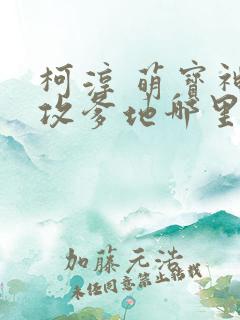 柯淳 萌宝神
攻爹地哪里
加藤元浩
未经同意禁止转载